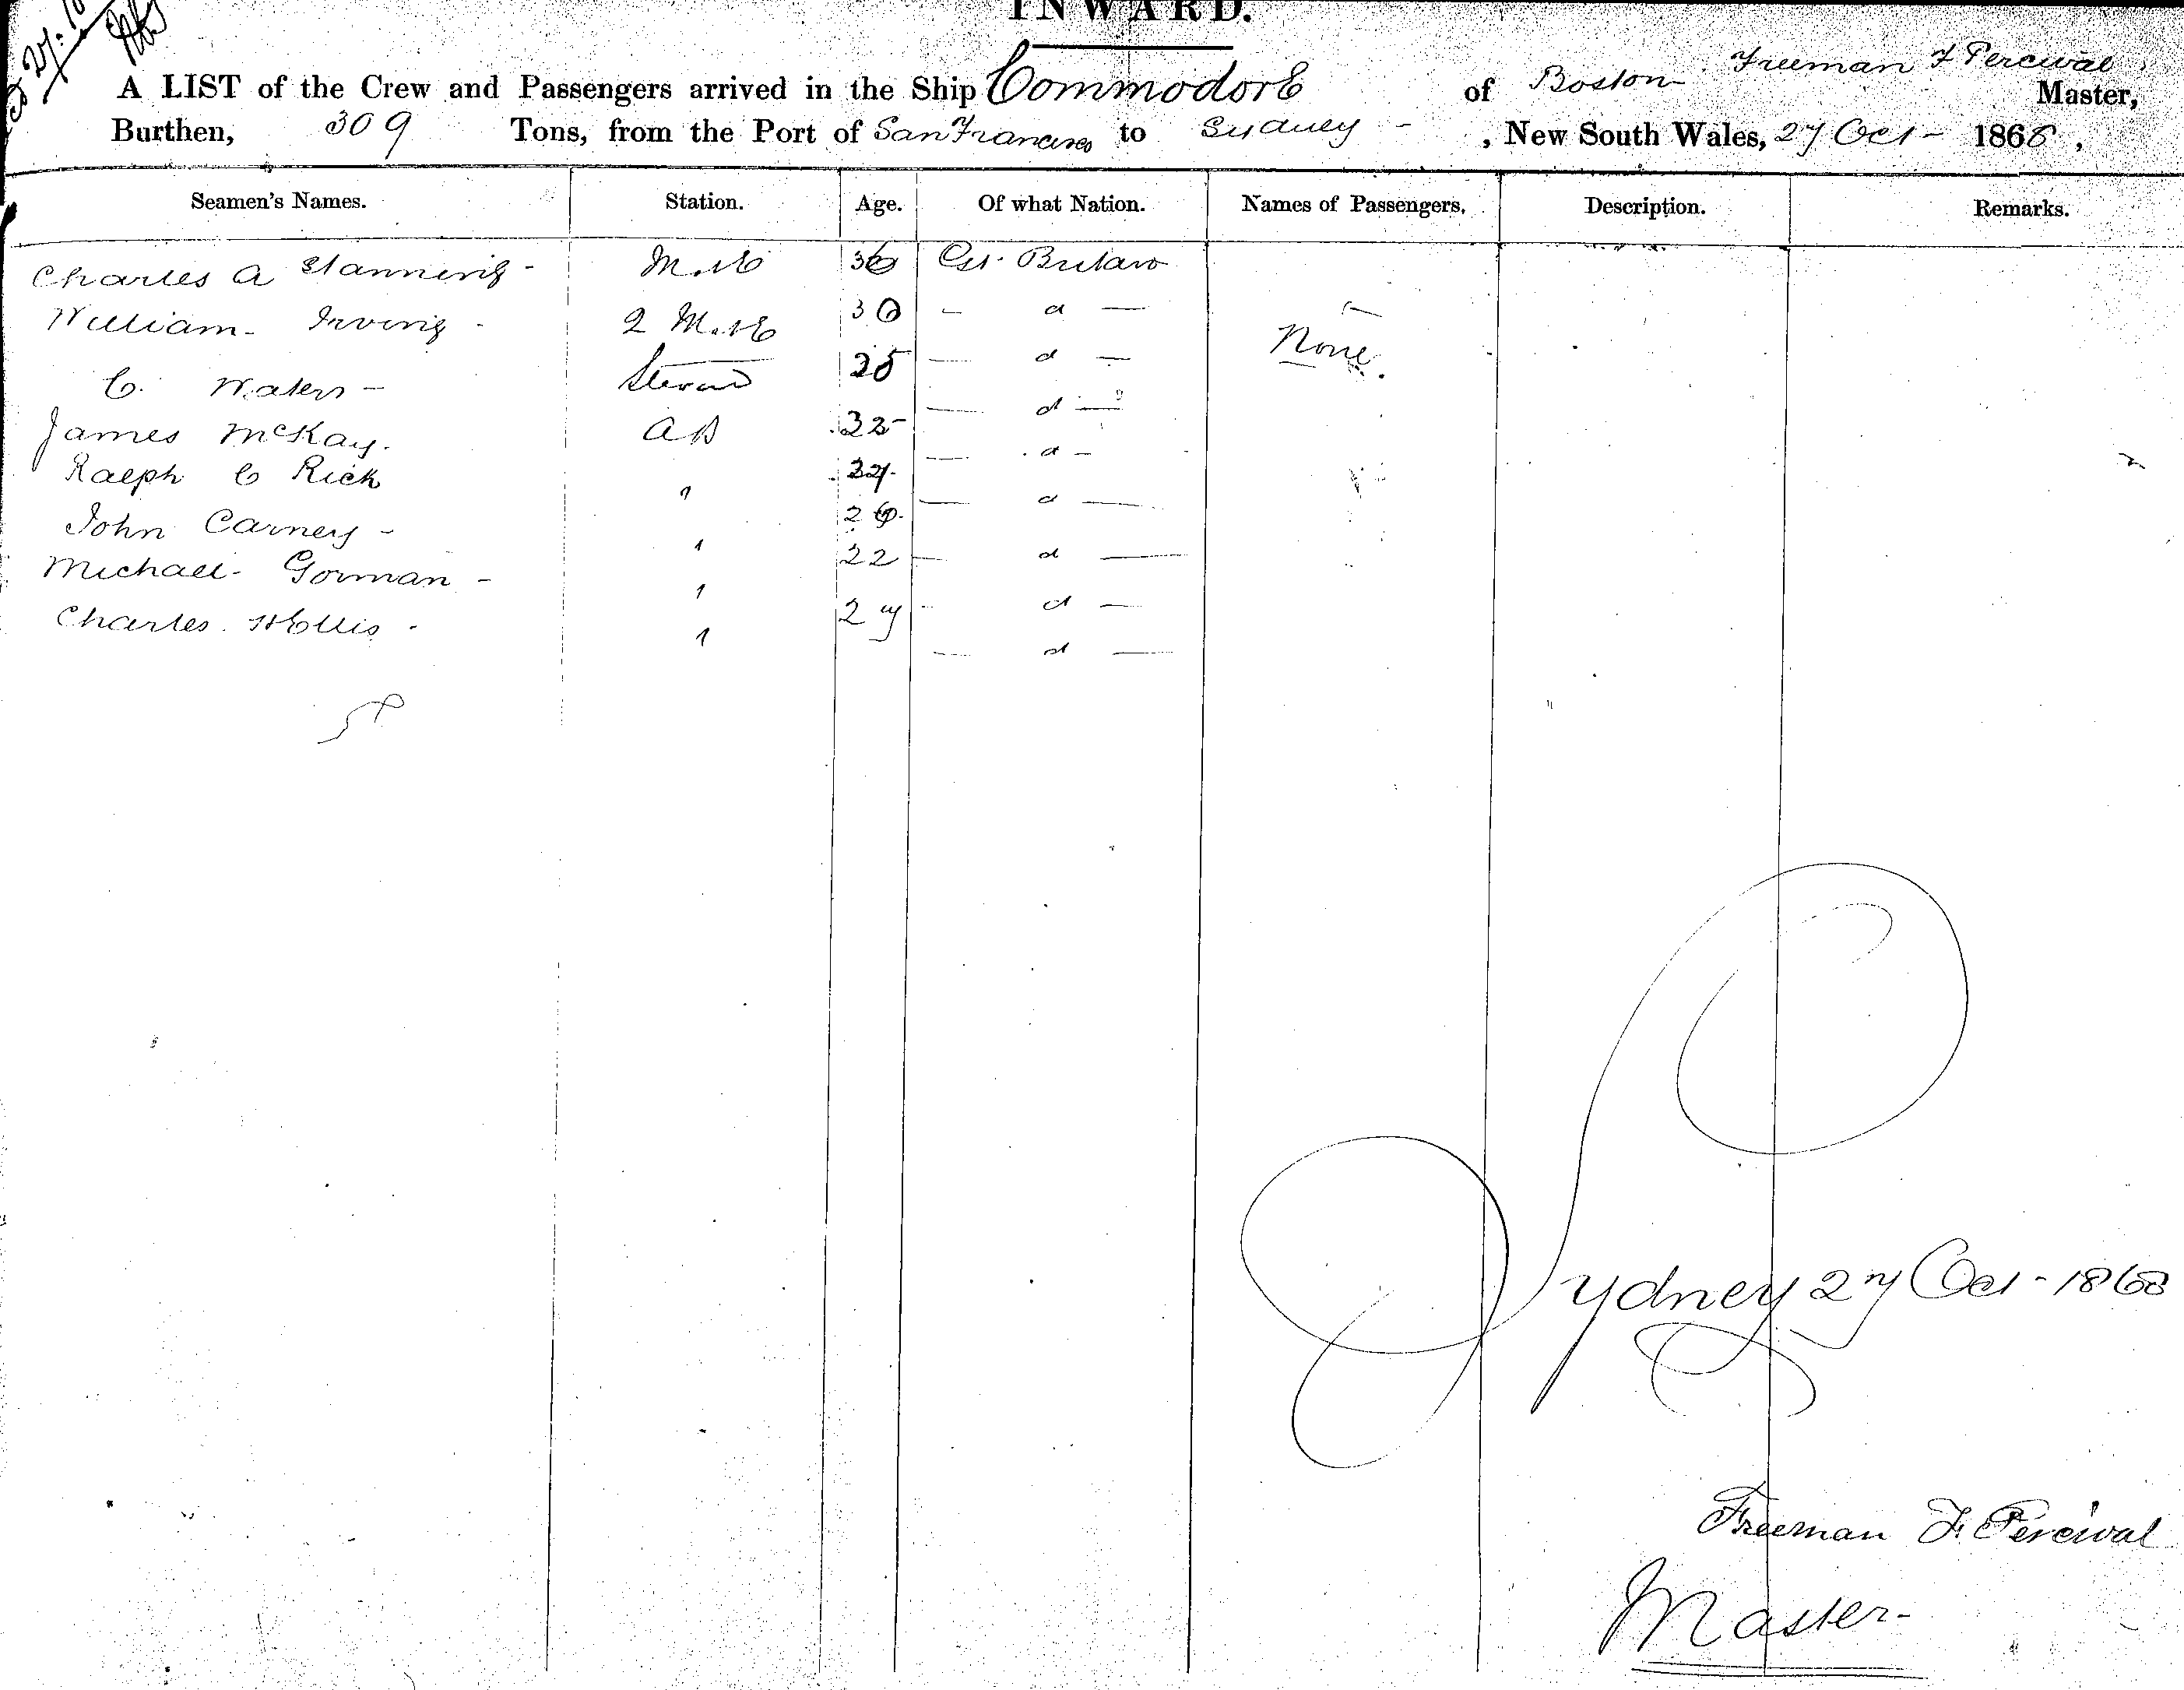 INWARD.
A LIST of the Crew and Passengers arrived in the Ship Commodore of Boston Freeman F Percival Master,
Burthen, 309 Tons, from the Port of San Francisco to Sydney - , New South Wales, 27 Oct - 1868,
Seamen's Names. Station. Age. Of what Nation. Names of Passengers. Description. Remarks.
Charles A Mate 36 Gt. Britain
William Irving 2 Mate 30 - d -
C. Waters - Steward 25 - d - None.
James McKay. AB 32 - d -
Ralph C Rick " - d -
John Carney - " 26 - d -
Michael Gorman - " 22 - d -
Charles Hollis " 27 - d -
Sydney 27 Oct - 1868
Freeman F. Percival
Master -